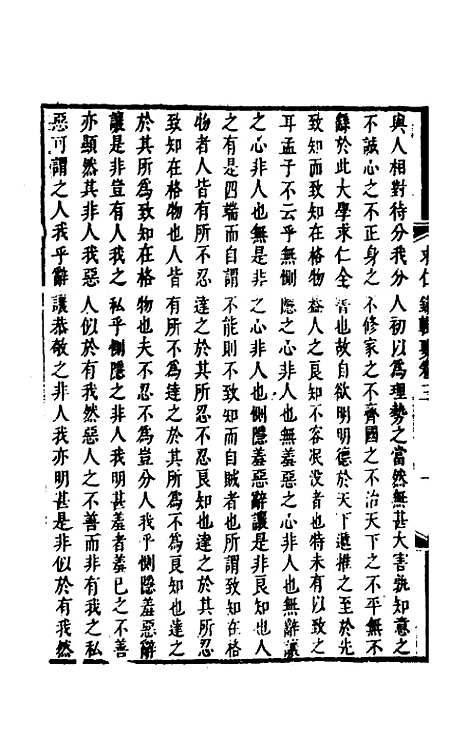 與人相對待分我分人初以為理勢之當然無甚大害孰知意之
不誠心之不正身之不修家之不齊國之不治天下之不平無不
繇於此大學求仁全書也故自欲明明德於天下遞推之至於先
致知而致知在格物蓋人之良知不容泯没者也特未有以致之
耳孟子不云乎無惻隱之心非人也無羞惡之心非人也無辭讓
之心非人也無是非之心非人也惻隱羞惡辭讓是非良知也人
之有是四端而自謂不能則不致知而自賊者也所謂致知在格
物者人皆有所不忍達之於其所忍不忍良知也達之於其所忍
致知在格物也人皆有所不為達之於其所為不為良知也達之
於其所為致知在格物也夫不忍不為豈分人我乎惻隱羞惡辭
讓是非豈有人我之私乎惻隱之非人我明甚羞者羞已之不善
亦顯然其非人我惡人似於有我然惡人之不善而非有我之私
惡可謂之人我乎辭讓恭敬之非人我亦明甚是非似於有我然
求仁錄輯要卷三
一